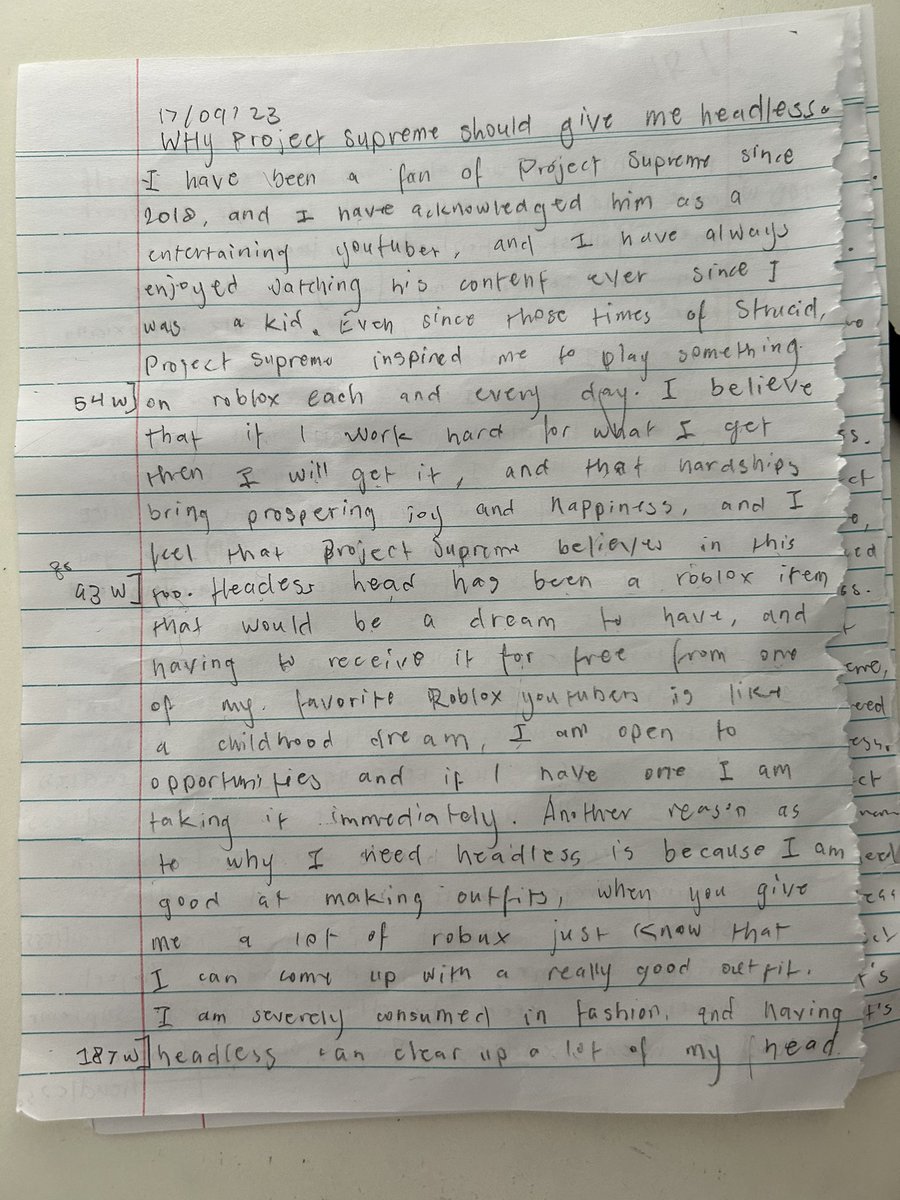 17/09/23
WHY Project Supreme should give me headless.
I have been a fan of Project Supreme since
2018, and I have acknowledged him as a
entertaining youtuber, and I have always
enjoyed watching his content ever since I
was a kid. Even since those times of Strucid,
Project Supreme inspired me to play something
54 w] on roblox each and every day. I believe
that if I work hard for what I get
then I will get it, and that hardships
bring prospering joy and happiness, and I
feel that Project Supreme believes in this
86
93 w] too. Headless head has been a roblox item
that would be a dream to have, and
having to receive it for free from one
of my favorite Roblox youtubers is like
a childhood dream, I am open to
opportunities and if I have one I am
taking it immediately. Another reason as
to why I need headless is because I am
good at making outfits, when you give
me a lot of robux just know that
I can come up with a really good outfit.
I am severely consumed in fashion, and having
187 w] headless can clear up a lot of my head